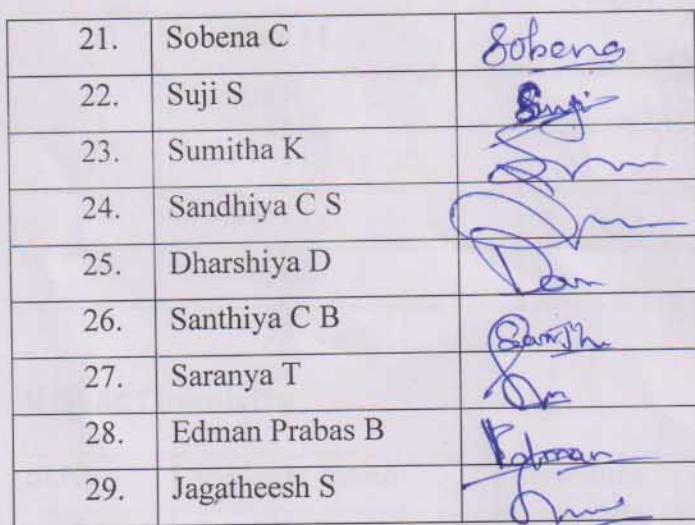 21. Sobena C Sobena
22. Suji S Suji
23. Sumitha K
24. Sandhiya C S
25. Dharshiya D
26. Santhiya C B
27. Saranya T
28. Edman Prabas B Edman
29. Jagatheesh S